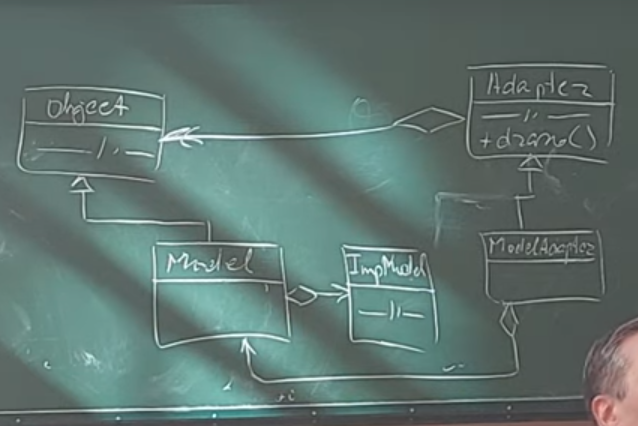 Object
— 〃 —
Adapter
— 〃 —
+draw()
Model
ImpModel
— 〃 —
ModelAdapter